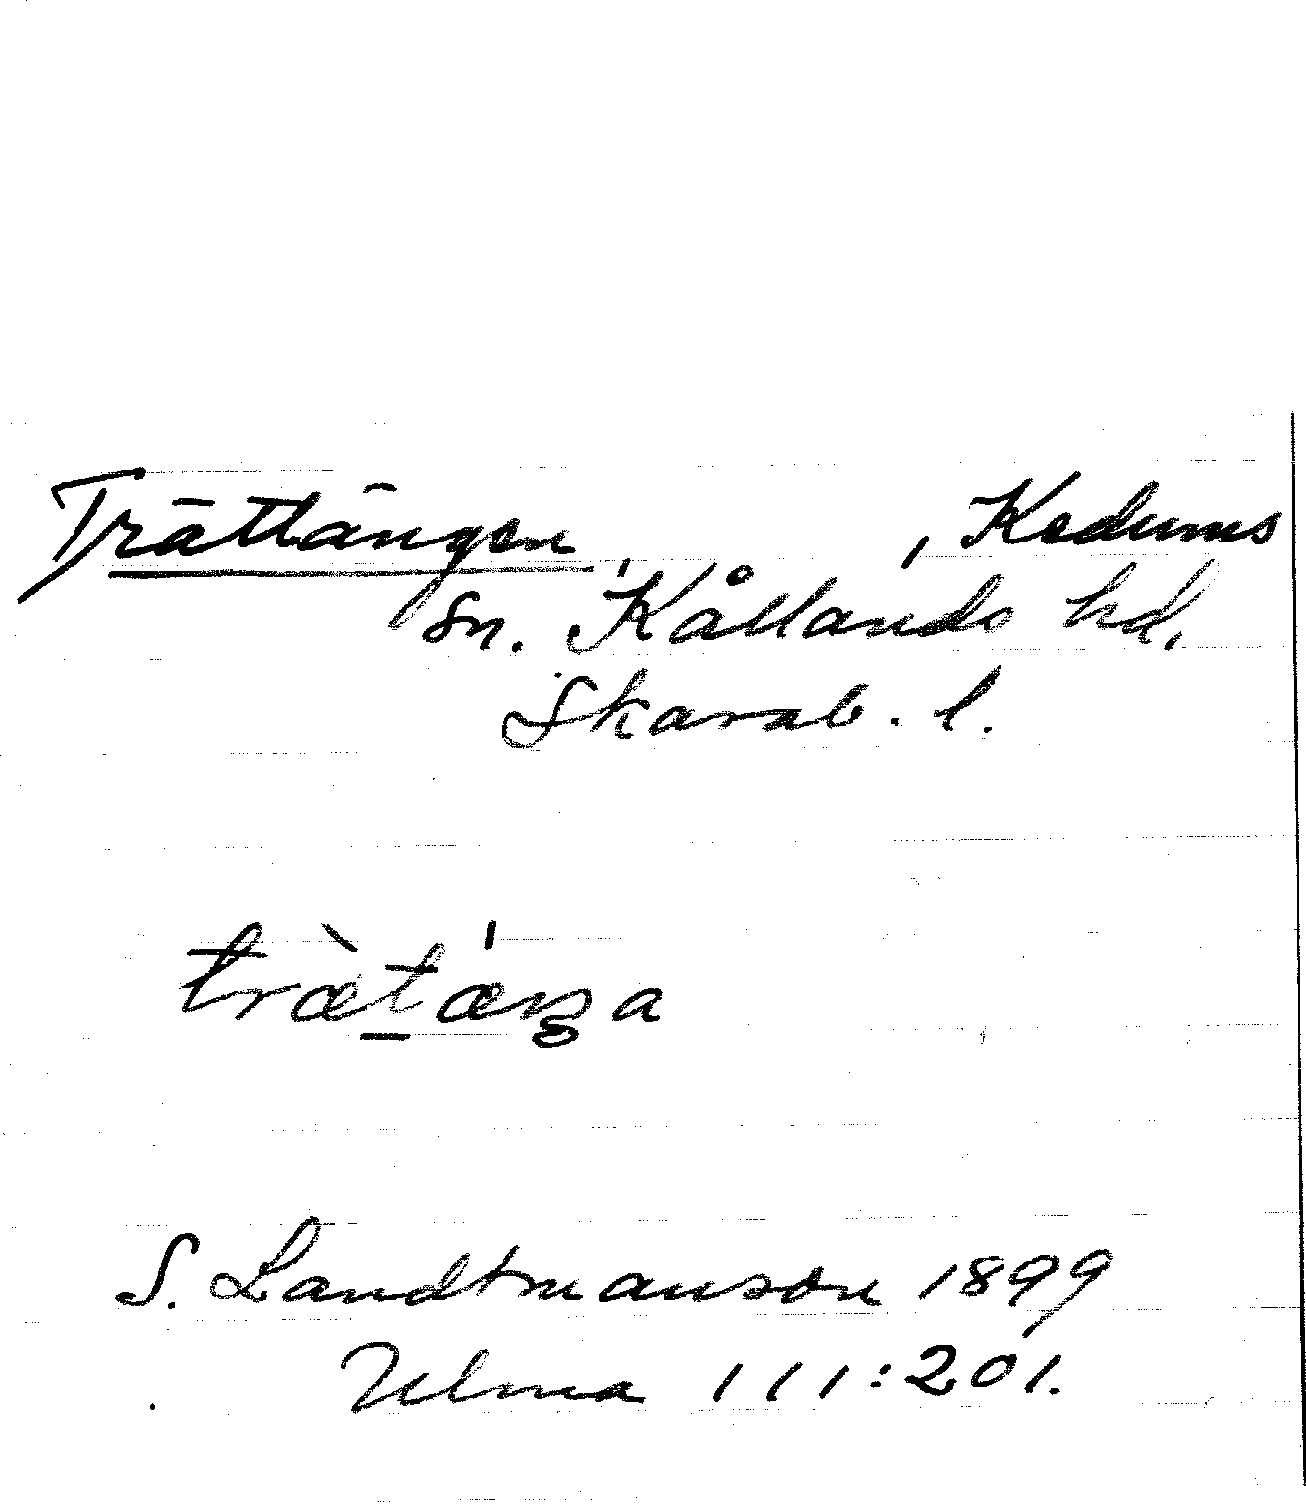 Trättängen, Kedums
sn. Kållands hd.
Skarab. l.
træ̀t̠ǽŋa
S. Landtmanson 1899
Ulma 111:201.